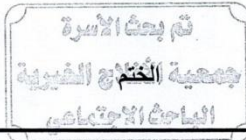 تم بحث الأسرة
جمعية الفلاح الخيرية
الختم
الباحث الاجتماعي